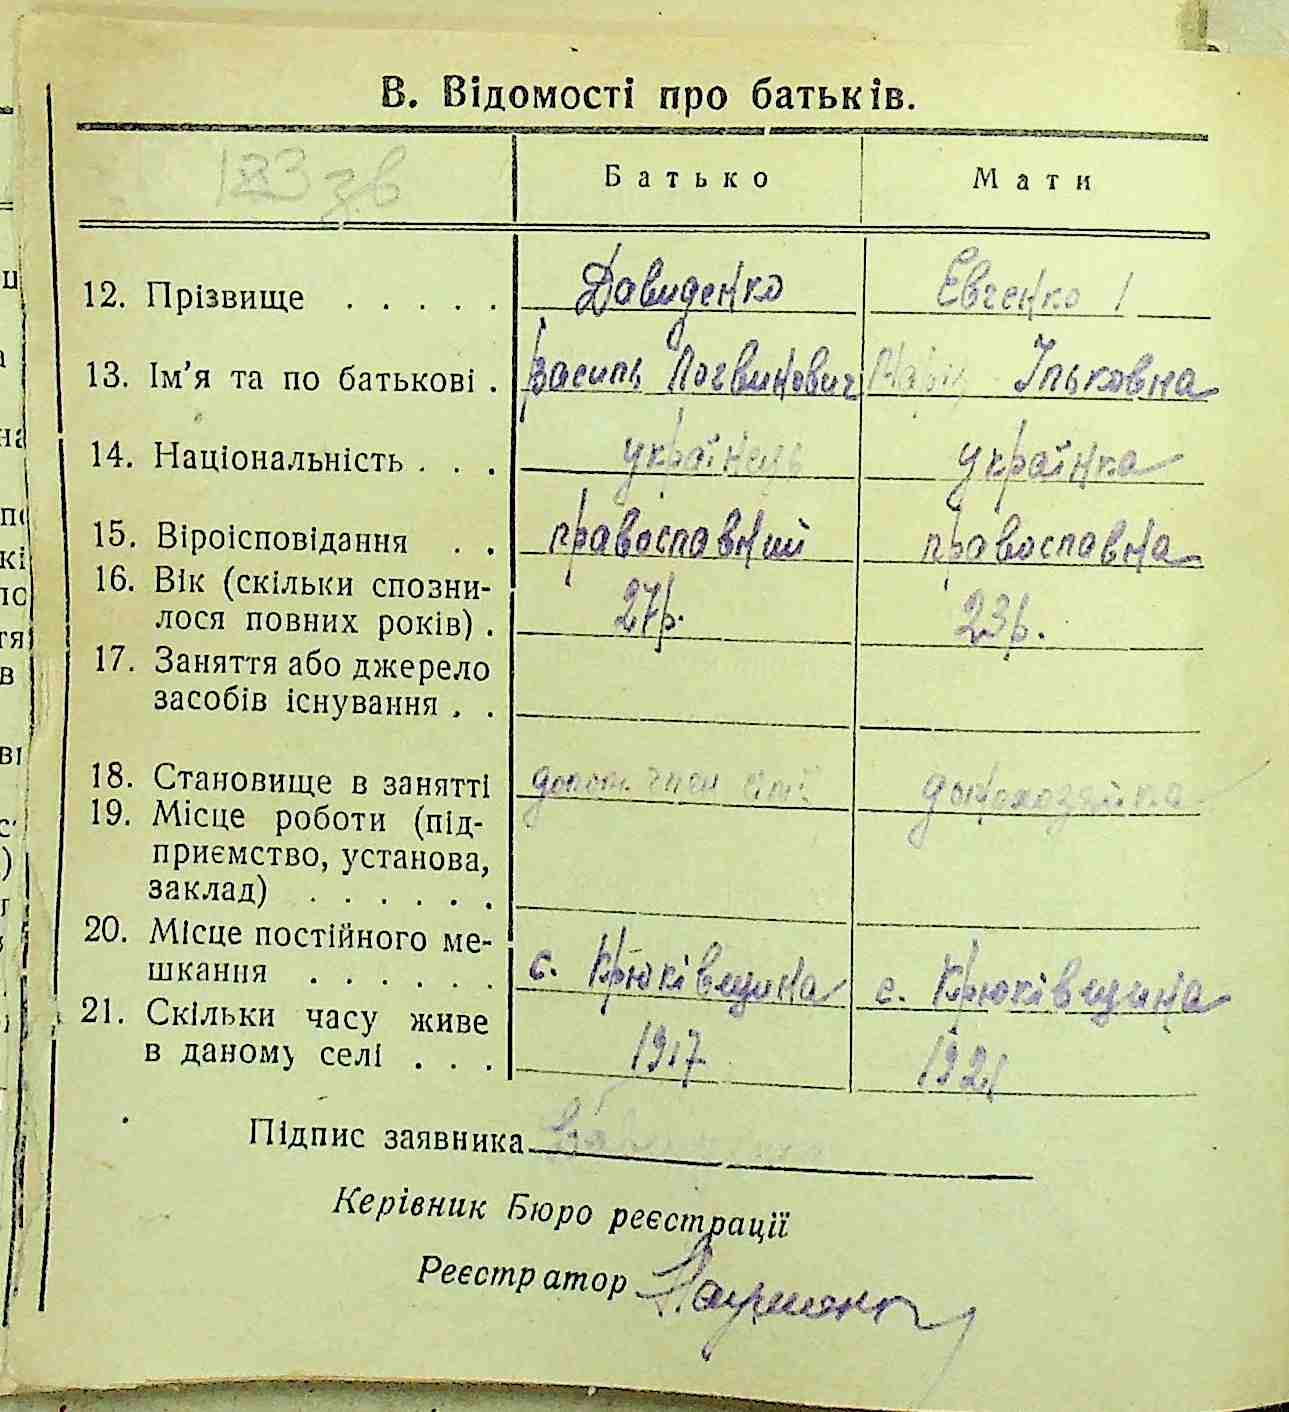 В. Відомості про батьків.
Батько Мати
12. Прізвище . . . . . Давиденко Євченко
13. Ім'я та по батькові . Василь Логвинович Марія Ільковна
14. Національність . . . українець українка
15. Віроісповідання . . православний православна
16. Вік (скільки спозни-
лося повних років) . 27р. 23р.
17. Заняття або джерело
засобів існування . .
18. Становище в занятті допом. член сім'ї домохозяйка
19. Місце роботи (під-
приємство, установа,
заклад) . . . . . .
20. Місце постійного ме-
шкання . . . . . . с. Крюківщина с. Крюківщина
21. Скільки часу живе
в даному селі . . . 1917 1921
Підпис заявника
Керівник Бюро реєстрації
Реєстратор